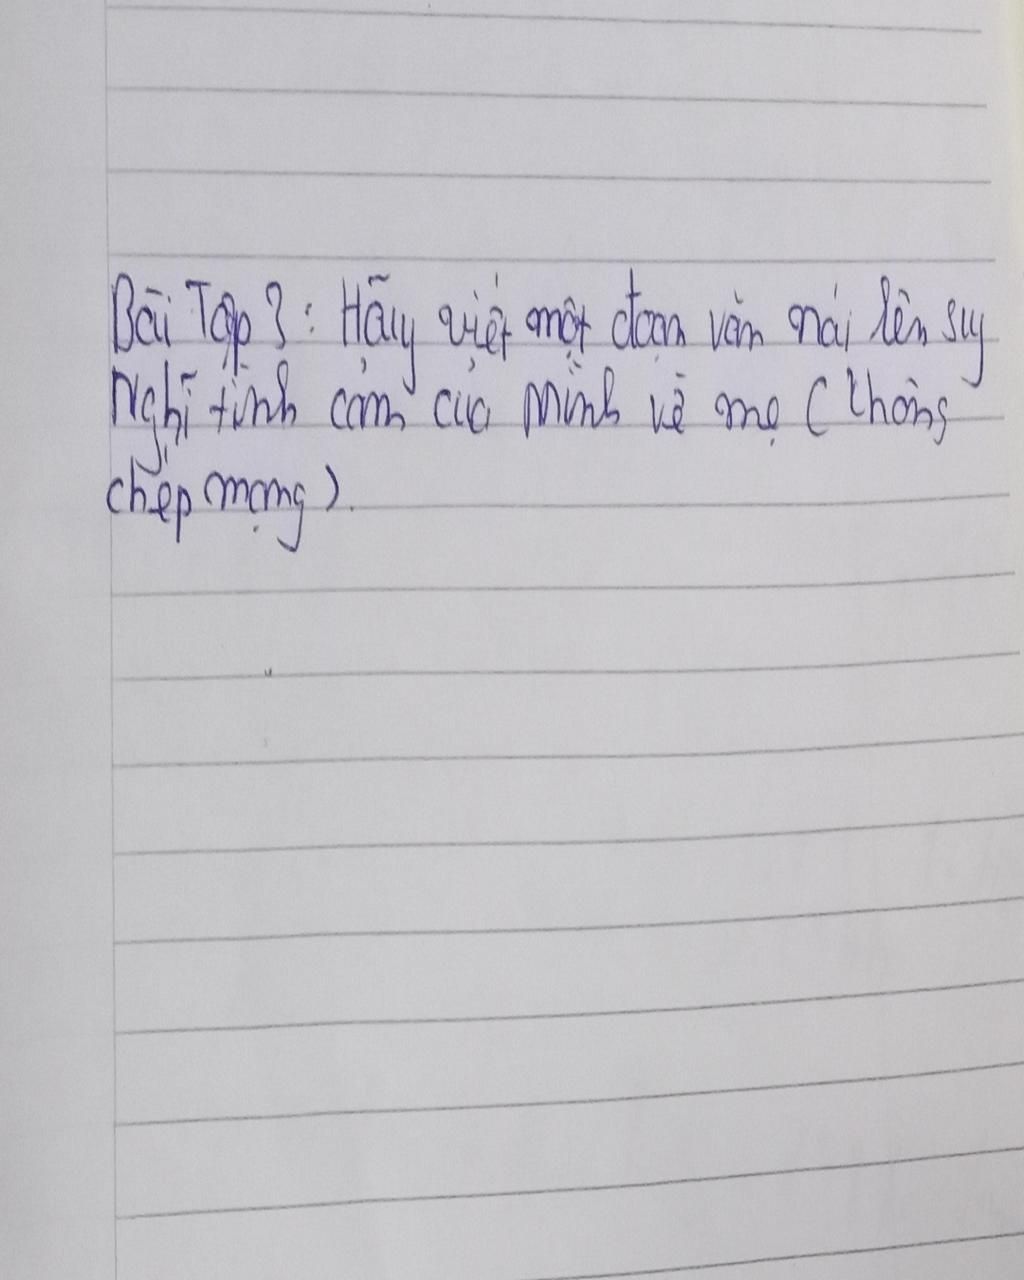 Bài Tập 3: Hãy viết một đoạn văn nói lên suy
Nghĩ tình cảm của mình về mẹ ( không
chép mạng ).